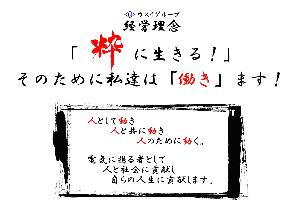 ウスイグループ
経営理念
「粋に生きる！」
そのために私達は「働き」ます！
人として働き
人と共に働き
人のために働く。
電気に携る者として
人と社会に貢献し
自らの人生に貢献します。